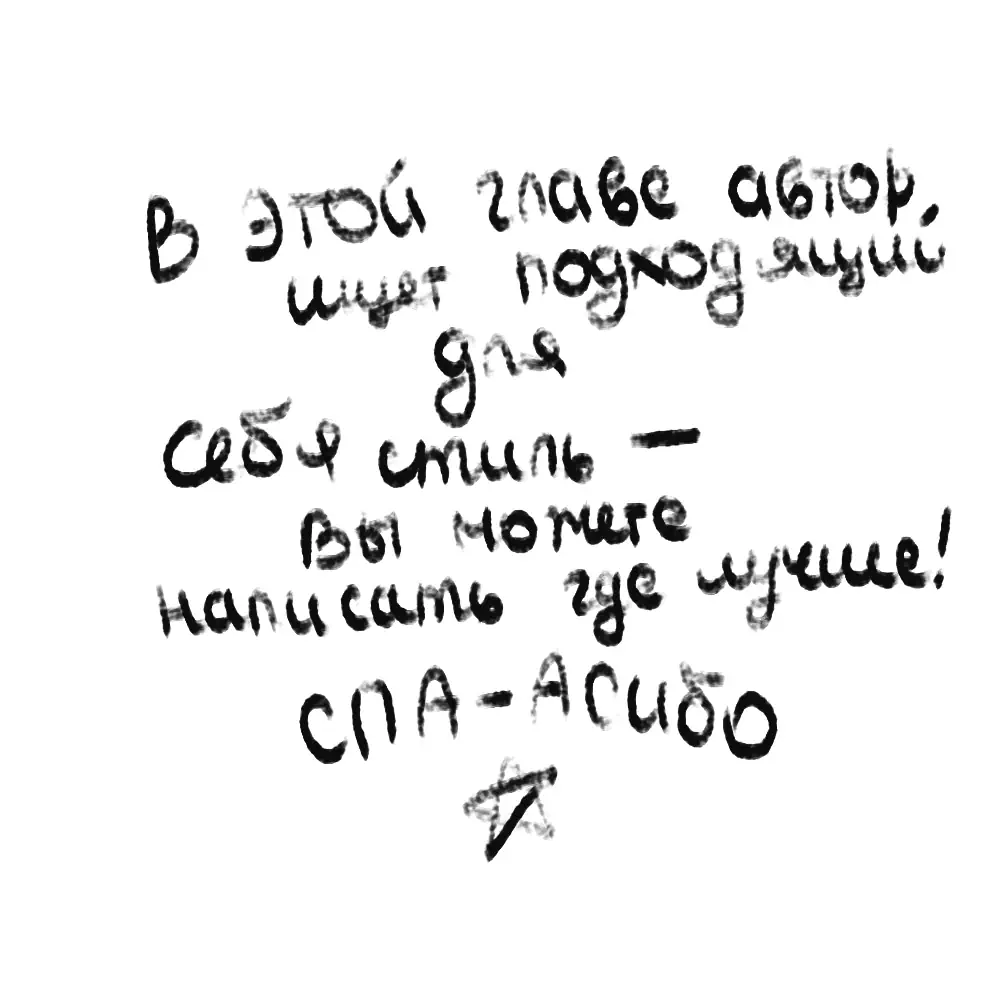 В этой главе автор,
ищет подходящий
для
себя стиль —
вы можете
написать где лучше!
СПА-АСибО